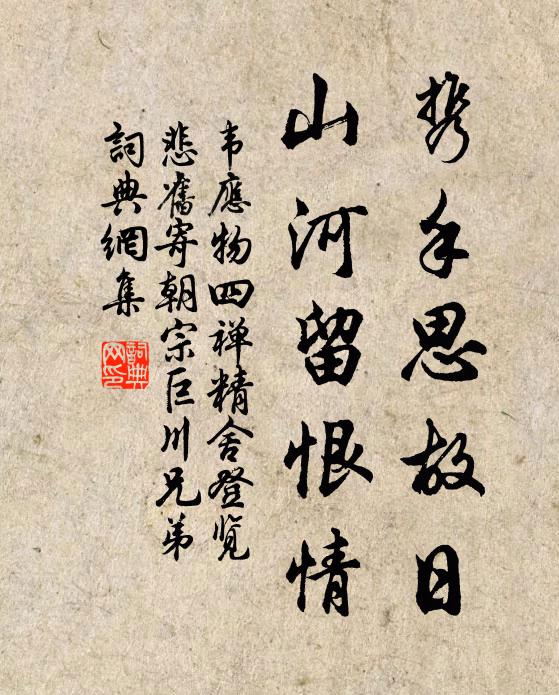 携手思故日
山河留恨情
韦應物四禅精舍登览
悲舊寄朝宗巨川兄弟
詞典網集
詞典網印